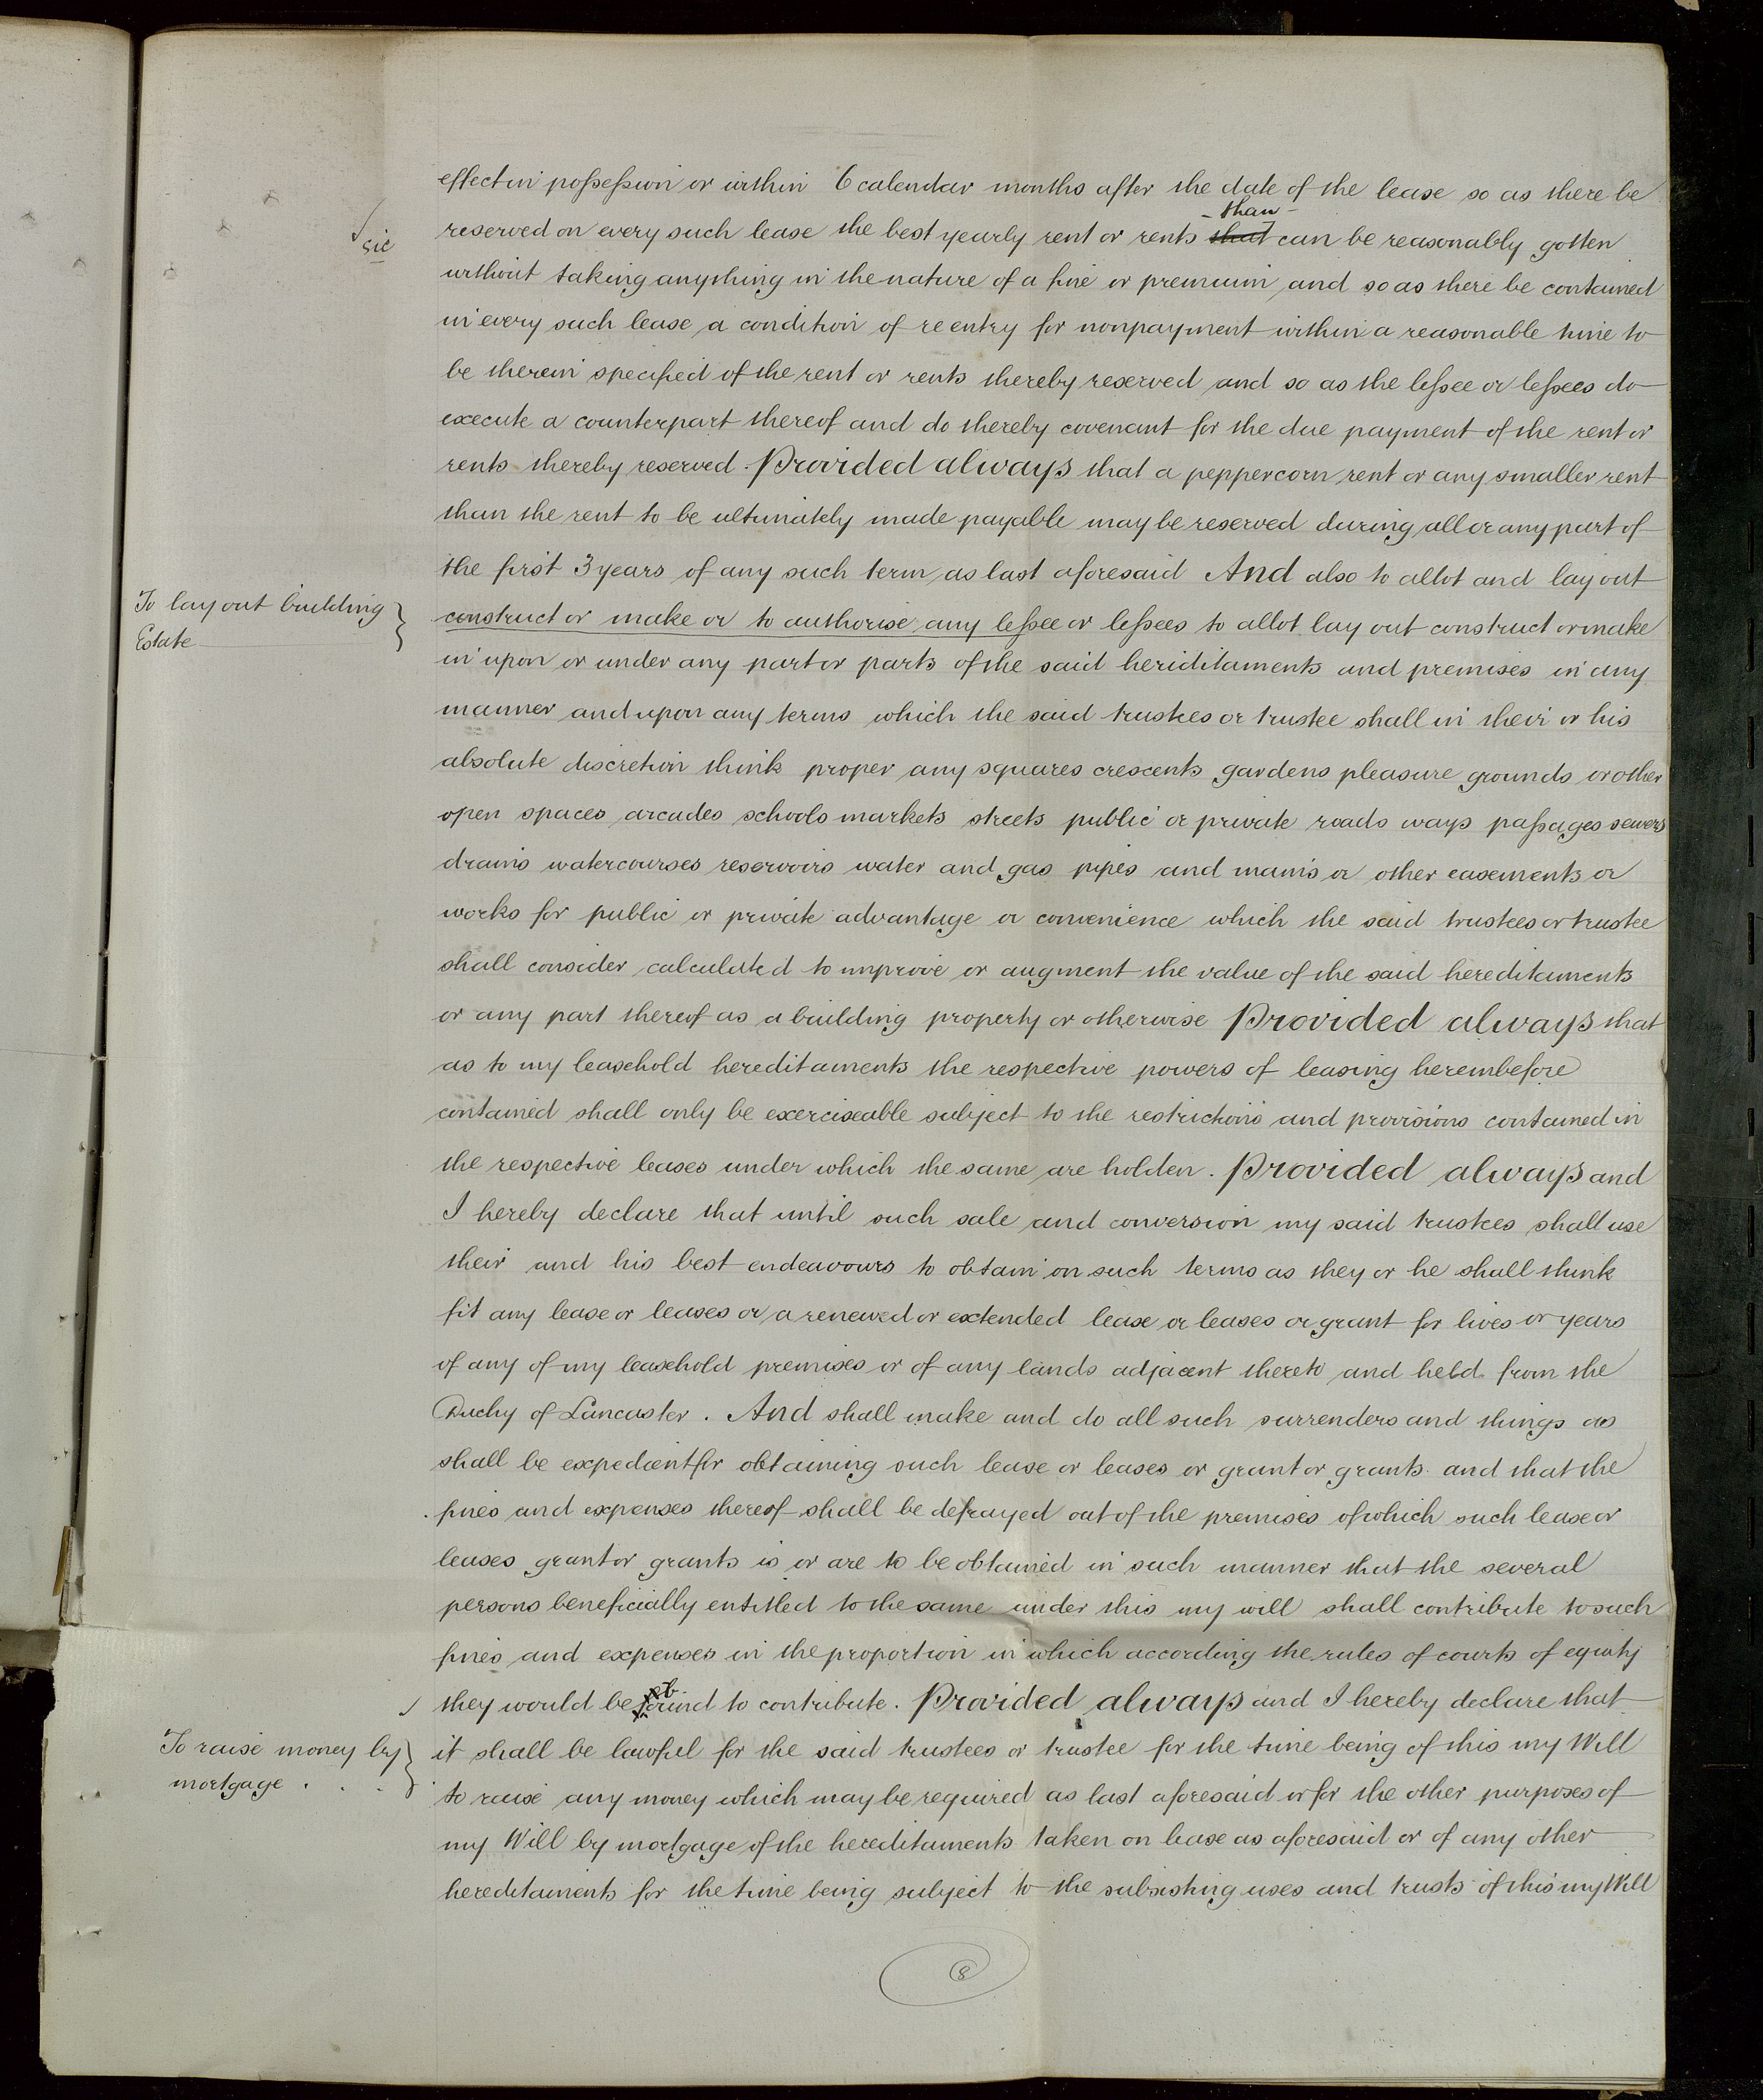 effect in possession or within 6 calendar months after the date of the lease so as there be
- than -
sic
reserved on every such lease the best yearly rent or rents that can be reasonably gotten
without taking anything in the nature of a fine or premium and so as there be contained
in every such lease a condition of re entry for nonpayment within a reasonable time to
be therein specified of the rent or rents thereby reserved and so as the lessee or lessees do
execute a counterpart thereof and do thereby covenant for the due payment of the rent or
rents thereby reserved. Provided always that a peppercorn rent or any smaller rent
than the rent to be ultimately made payable may be reserved during all or any part of
the first 3 years of any such term as last aforesaid And also to allot and lay out
To lay out building
Estate
construct or make or to authorise any lessee or lessees to allot lay out construct or make
in upon or under any part or parts of the said heriditaments and premises in any
manner and upon any terms which the said trustees or trustee shall in their or his
absolute discretion think proper any squares crescents gardens pleasure grounds or other
open spaces arcades schools markets streets public or private roads ways passages sewers
drains watercourses reservoirs water and gas pipes and mains or other easements or
works for public or private advantage or convenience which the said trustees or trustee
shall consider calculated to improve or augment the value of the said hereditaments
or any part thereof as a building property or otherwise Provided always that
as to my leasehold hereditaments the respective powers of leasing hereinbefore
contained shall only be exerciseable subject to the restrictions and provisions contained in
the respective leases under which the same are holden. Provided always and
I hereby declare that until such sale and conversion my said trustees shall use
their and his best endeavours to obtain on such terms as they or he shall think
fit any lease or leases or a renewed or extended lease or leases or grant for lives or years
of any of my leasehold premises or of any lands adjacent thereto and held from the
Duchy of Lancaster. And shall make and do all such surrenders and things as
shall be expedient for obtaining such lease or leases or grant or grants and that the
fines and expenses thereof shall be defrayed out of the premises of which such lease or
leases grant or grants is or are to be obtained in such manner that the several
persons beneficially entitled to the same under this my will shall contribute to such
fines and expenses in the proportion in which according the rules of courts of equity
they would be bound to contribute. Provided always and I hereby declare that
To raise money by
mortgage . . .
it shall be lawful for the said trustees or trustee for the time being of this my Will
to raise any money which may be required as last aforesaid or for the other purposes of
my Will by mortgage of the hereditaments taken on lease as aforesaid or of any other
hereditaments for the time being subject to the subsisting uses and trusts of this my Will
8